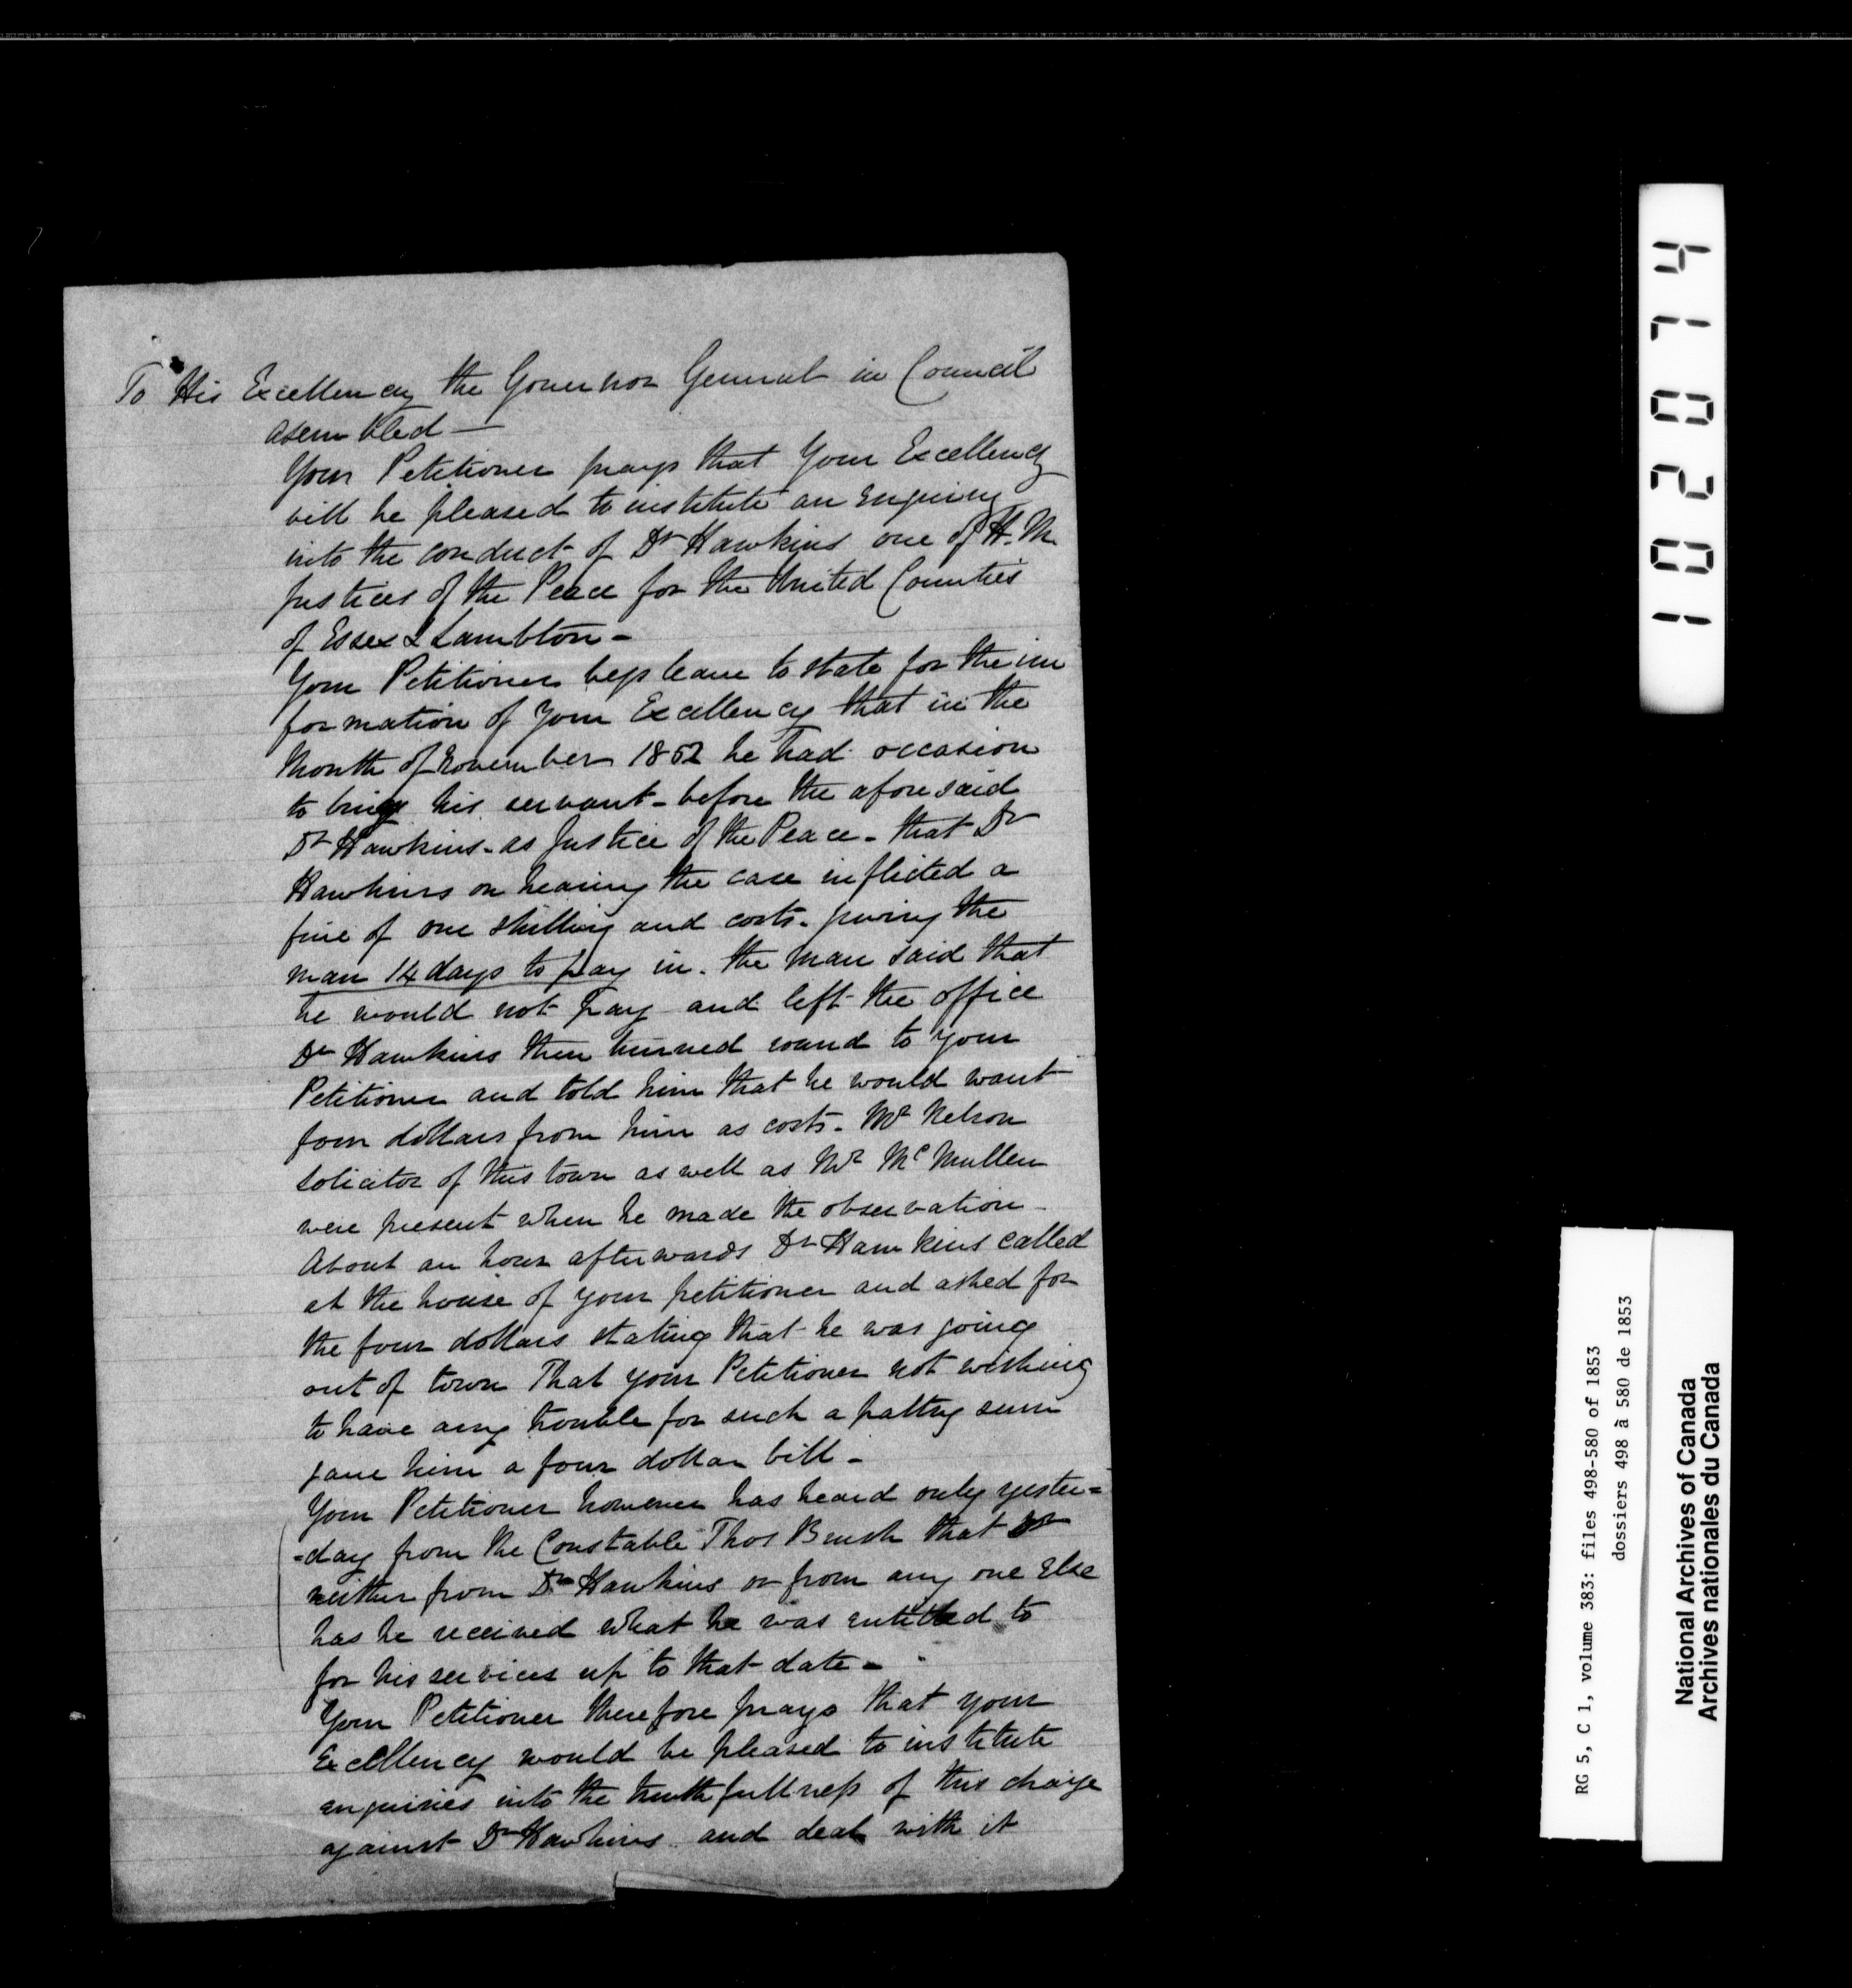 To His Excellency the Governor General in Council
assembled —
Your Petitioner prays that Your Excellency
will be pleased to institute an enquiry
into the conduct of Dr Hawkins one of H. M.
Justices of the Peace for the United Counties
of Essex & Lambton -
Your Petitioner begs leave to state for the in
formation of Your Excellency that in the
Month of November 1852 he had occasion
to bring his servant - before the aforesaid
Dr Hawkins - as Justice of the Peace - that Dr
Hawkins on hearing the case inflicted a
fine of one shilling and costs - giving the
man 14 days to pay in. the man said that
he would not pay and left the office
Dr Hawkins then turned round to your
Petitioner and told him that he would want
four dollars from him as costs - Mr Nelson
solicitor of this town as well as Mr McMullen
were present when he made the observation -
About an hour afterwards Dr Hawkins called
at the house of your petitioner and asked for
the four dollars stating that he was going
out of town That your Petitioner not wishing
to have any trouble for such a paltry sum
gave him a four dollar bill -
Your Petitioner however has heard only yester=
=day from the Constable Thos Brush that
neither from Dr Hawkins or from any one else
has he received what he was entitled to
for his services up to that date -
Your Petitioner therefore prays that your
Excellency would be pleased to institute
enquiries into the truthfullness of this charge
against Dr Hawkins and deal with it
102074
RG 5, C 1, volume 383: files 498-580 of 1853
dossiers 498 à 580 de 1853
National Archives of Canada
Archives nationales du Canada